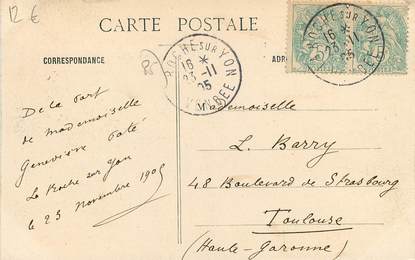 12 €
CARTE POSTALE
CORRESPONDANCE
ROCHE SUR YON
16 *
23 -11
05
VENDEE
ROCHE SUR YON
16 *
23 -11
05
De la part
de Mademoiselle
Geneviève Paté
La Roche sur Yon
le 23 Novembre 1905
Mademoiselle
L. Barry
48 Boulevard de Strasbourg
Toulouse
(Haute-Garonne)